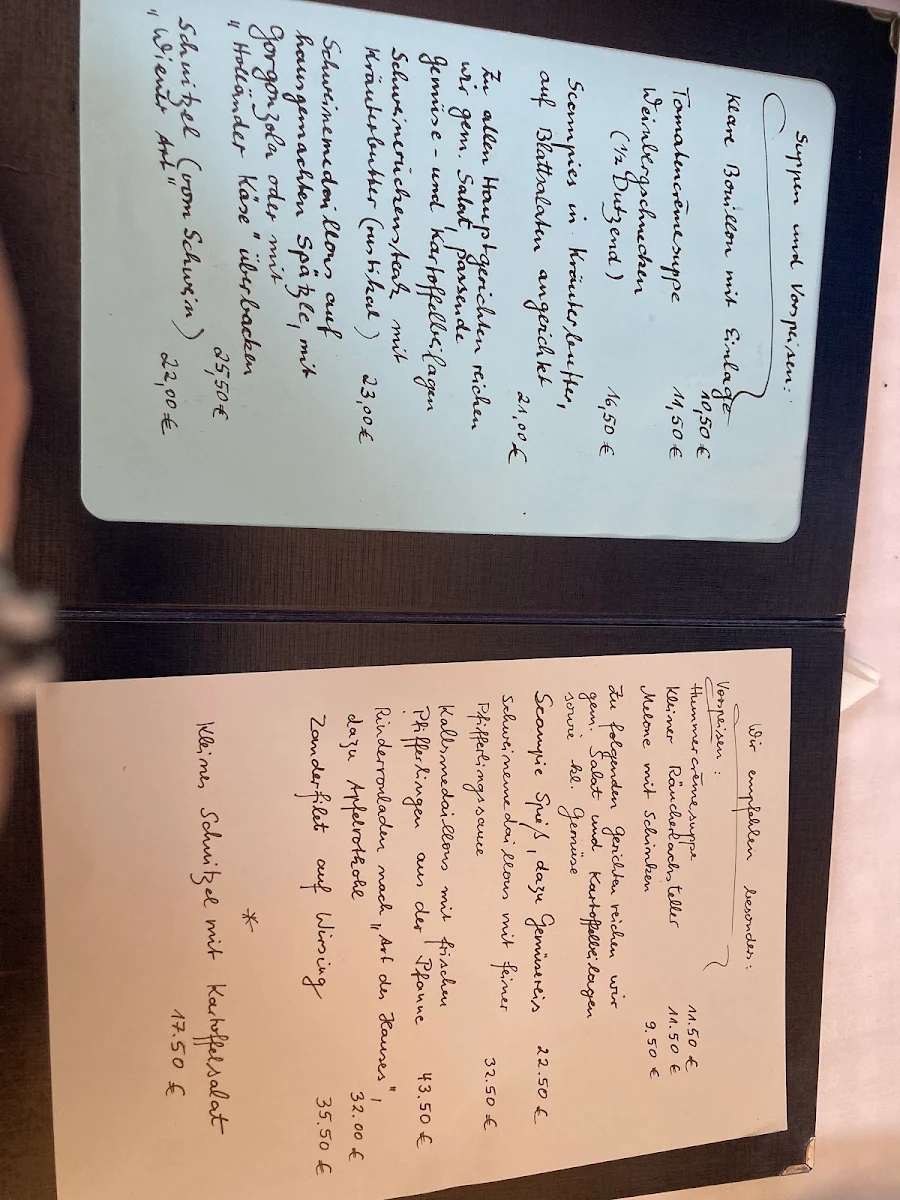 Suppen und Vorspeisen:
Klare Bouillon mit Einlage
10,50 €
Tomatencrèmesuppe 11,50 €
Weinbergschnecken
(½ Dutzend) 16,50 €
Scampies in Kräuterbutter,
auf Blattsalaten angerichtet
21,00 €
Zu allen Hauptgerichten reichen
wir gem. Salat, passende
Gemüse- und Kartoffelbeilagen
Schweinerückensteak mit
Kräuterbutter (rustikal) 23,00 €
Schweinemedaillons auf
hausgemachten Spätzle, mit
Gorgonzola oder mit
"Holländer Käse" überbacken
25,50 €
Schnitzel (vom Schwein)
"Wiener Art" 22,00 €
Wir empfehlen besonders:
Vorspeisen:
Hummercrèmesuppe 11.50 €
Kleiner Räucherlachsteller 11.50 €
Melone mit Schinken 9.50 €
Zu folgenden Gerichten reichen wir
gem. Salat und Kartoffelbeilagen
sowie kl. Gemüse
Scampie Spieß, dazu Gemüsereis 22.50 €
Schweinemedaillons mit feiner
Pfifferlingssauce 32.50 €
Kalbsmedaillons mit frischen
Pfifferlingen aus der Pfanne 43.50 €
Rinderrouladen nach "Art des Hauses",
dazu Apfelrotkohl 32.00 €
Zanderfilet auf Wirsing 35.50 €
*
Kleines Schnitzel mit Kartoffelsalat
17.50 €